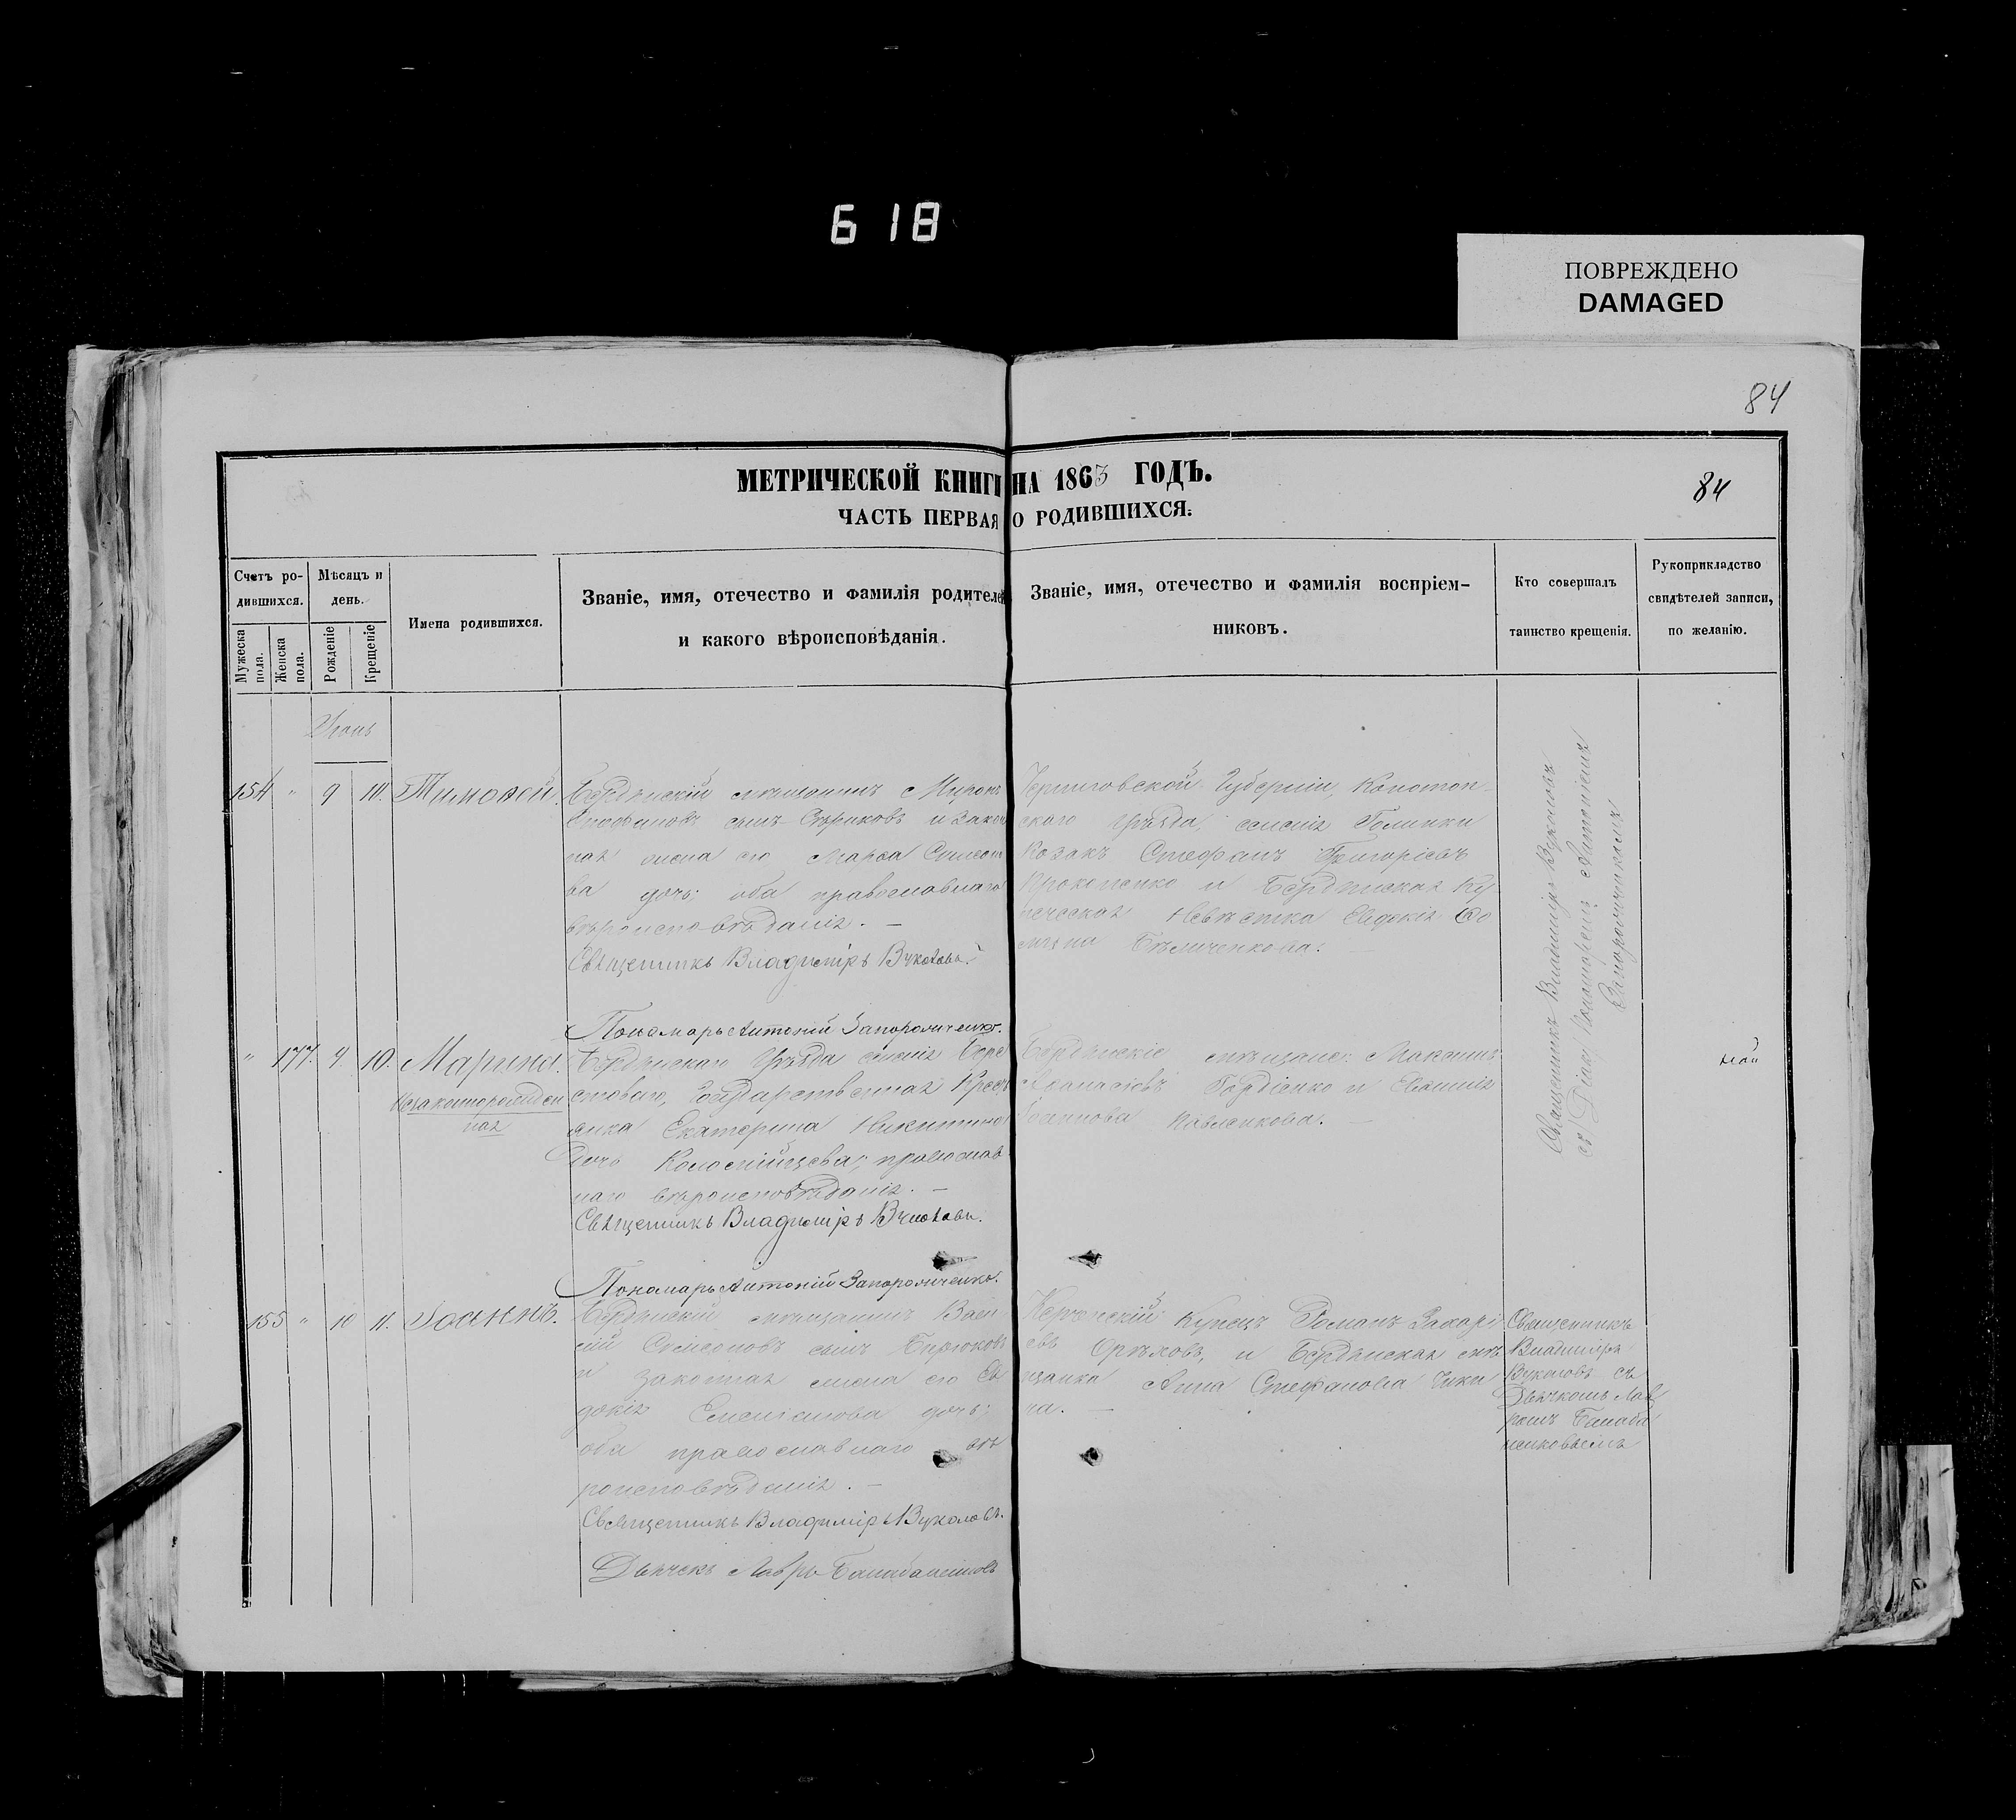 618
ПОВРЕЖДЕНО
DAMAGED
84
МЕТРИЧЕСКОЙ КНИГИ НА 1863 ГОДЪ.
84
ЧАСТЬ ПЕРВАЯ О РОДИВШИХСЯ.
Счетъ ро-
дившихся.
Мужеска пола.
Женска пола.
Мѣсяцъ и
день.
Рожденіе
Крещеніе
Имена родившихся.
Званіе, имя, отечество и фамилія родителей
и какого вѣроисповѣданія.
Званіе, имя, отечество и фамилія воспріем-
никовъ.
Кто совершалъ
таинство крещенія.
Рукоприкладство
свидѣтелей записи,
по желанію.
Іюнь
154 " 9 10. Тимофей.
Бердянскій мѣщанинъ Миронъ
сынъ и закон
ная жена его Марѳа
ва дочь; оба православнаго
вѣроисповѣданія. —
Священникъ Владиміръ Вуколовъ.
Пономарь Антоній Запорожченко.
Черниговской Губерніи, Конотоп-
скаго Уѣзда, селенія Голинки
Козакъ Стефанъ Григорьевъ
Прокопенко и Бердянская Ку-
печеская Невѣстка Евдокія Ѳо
мина Бѣличенкова. —
Священникъ Владиміръ Вуколовъ
съ Пономаремъ Антоніемъ
Запорожченкомъ
" 177. 4. 10. Марина.
незаконорожден
ная
Бердянскаго Уѣзда селенія Бере
стоваго, Государственная Крестъ
янка Екатерина Никитина
дочь Коломійцева; православ
наго вѣроисповѣданія. —
Священникъ Владиміръ Вуколовъ.
Пономарь Антоній Запорожченко.
Бердянскіе мѣщане: Максимъ
Аѳанасіевъ Гордіенко и Евѳимія
Іоаннова Павленкова. —
май
155 " 10 11. Іоаннъ.
Бердянскій мѣщанинъ Васи
лій Симеоновъ сынъ Бирюковъ
и законная жена его Ев
докія дочь;
оба православнаго вѣ
роисповѣданія. —
Священникъ Владиміръ Вуколовъ.
Дьячекъ Лавръ Балабаненковъ
Керченскій Купецъ Романъ Захарі
евъ Орѣховъ, и Бердянская мѣ
щанка Анна Стефанова Чики
на. —
Священникъ
Владиміръ
Вуколовъ съ
Дьячкомъ Лав
ромъ Балаба
ненковымъ